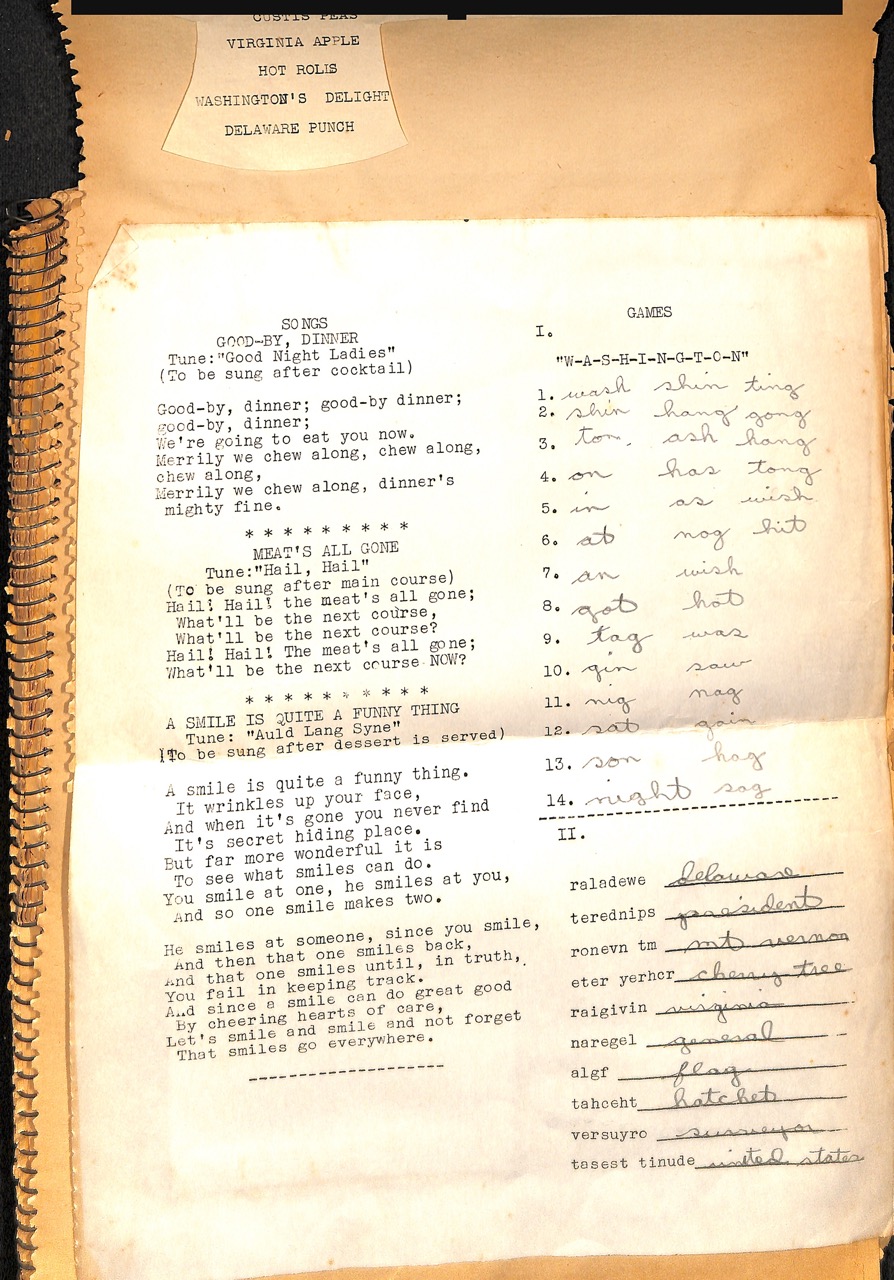 CUSTIS PEAS
VIRGINIA APPLE
HOT ROLLS
WASHINGTON'S DELIGHT
DELAWARE PUNCH
SONGS
GOOD-BY, DINNER
Tune:"Good Night Ladies"
(To be sung after cocktail)
Good-by, dinner; good-by dinner;
good-by, dinner;
We're going to eat you now.
Merrily we chew along, chew along,
chew along,
Merrily we chew along, dinner's
mighty fine.
* * * * * * * * *
MEAT'S ALL GONE
Tune:"Hail, Hail"
(To be sung after main course)
Hail! Hail! the meat's all gone;
What'll be the next course,
What'll be the next course?
Hail! Hail! The meat's all gone;
What'll be the next course NOW?
* * * * * * * * * *
A SMILE IS QUITE A FUNNY THING
Tune: "Auld Lang Syne"
(To be sung after dessert is served)
A smile is quite a funny thing.
It wrinkles up your face,
And when it's gone you never find
It's secret hiding place.
But far more wonderful it is
To see what smiles can do.
You smile at one, he smiles at you,
And so one smile makes two.
He smiles at someone, since you smile,
And then that one smiles back,
And that one smiles until, in truth,
You fail in keeping track.
And since a smile can do great good
By cheering hearts of care,
Let's smile and smile and not forget
That smiles go everywhere.
GAMES
I.
"W-A-S-H-I-N-G-T-O-N"
1. wash shin ting
2. shin hang gong
3. ton. ash hang
4. on has tong
5. in as wish
6. at nog hit
7. an wish
8. got hot
9. tag was
10. gin saw
11. nig nag
12. sat gain
13. son hag
14. night sag
II.
raladewe delaware
terednips president
ronevn tm mt vernon
eter yerhcr cherry tree
raigivin virginia
naregel general
algf flag
tahceht hatchet
versuyro surveyor
tasest tinude united states